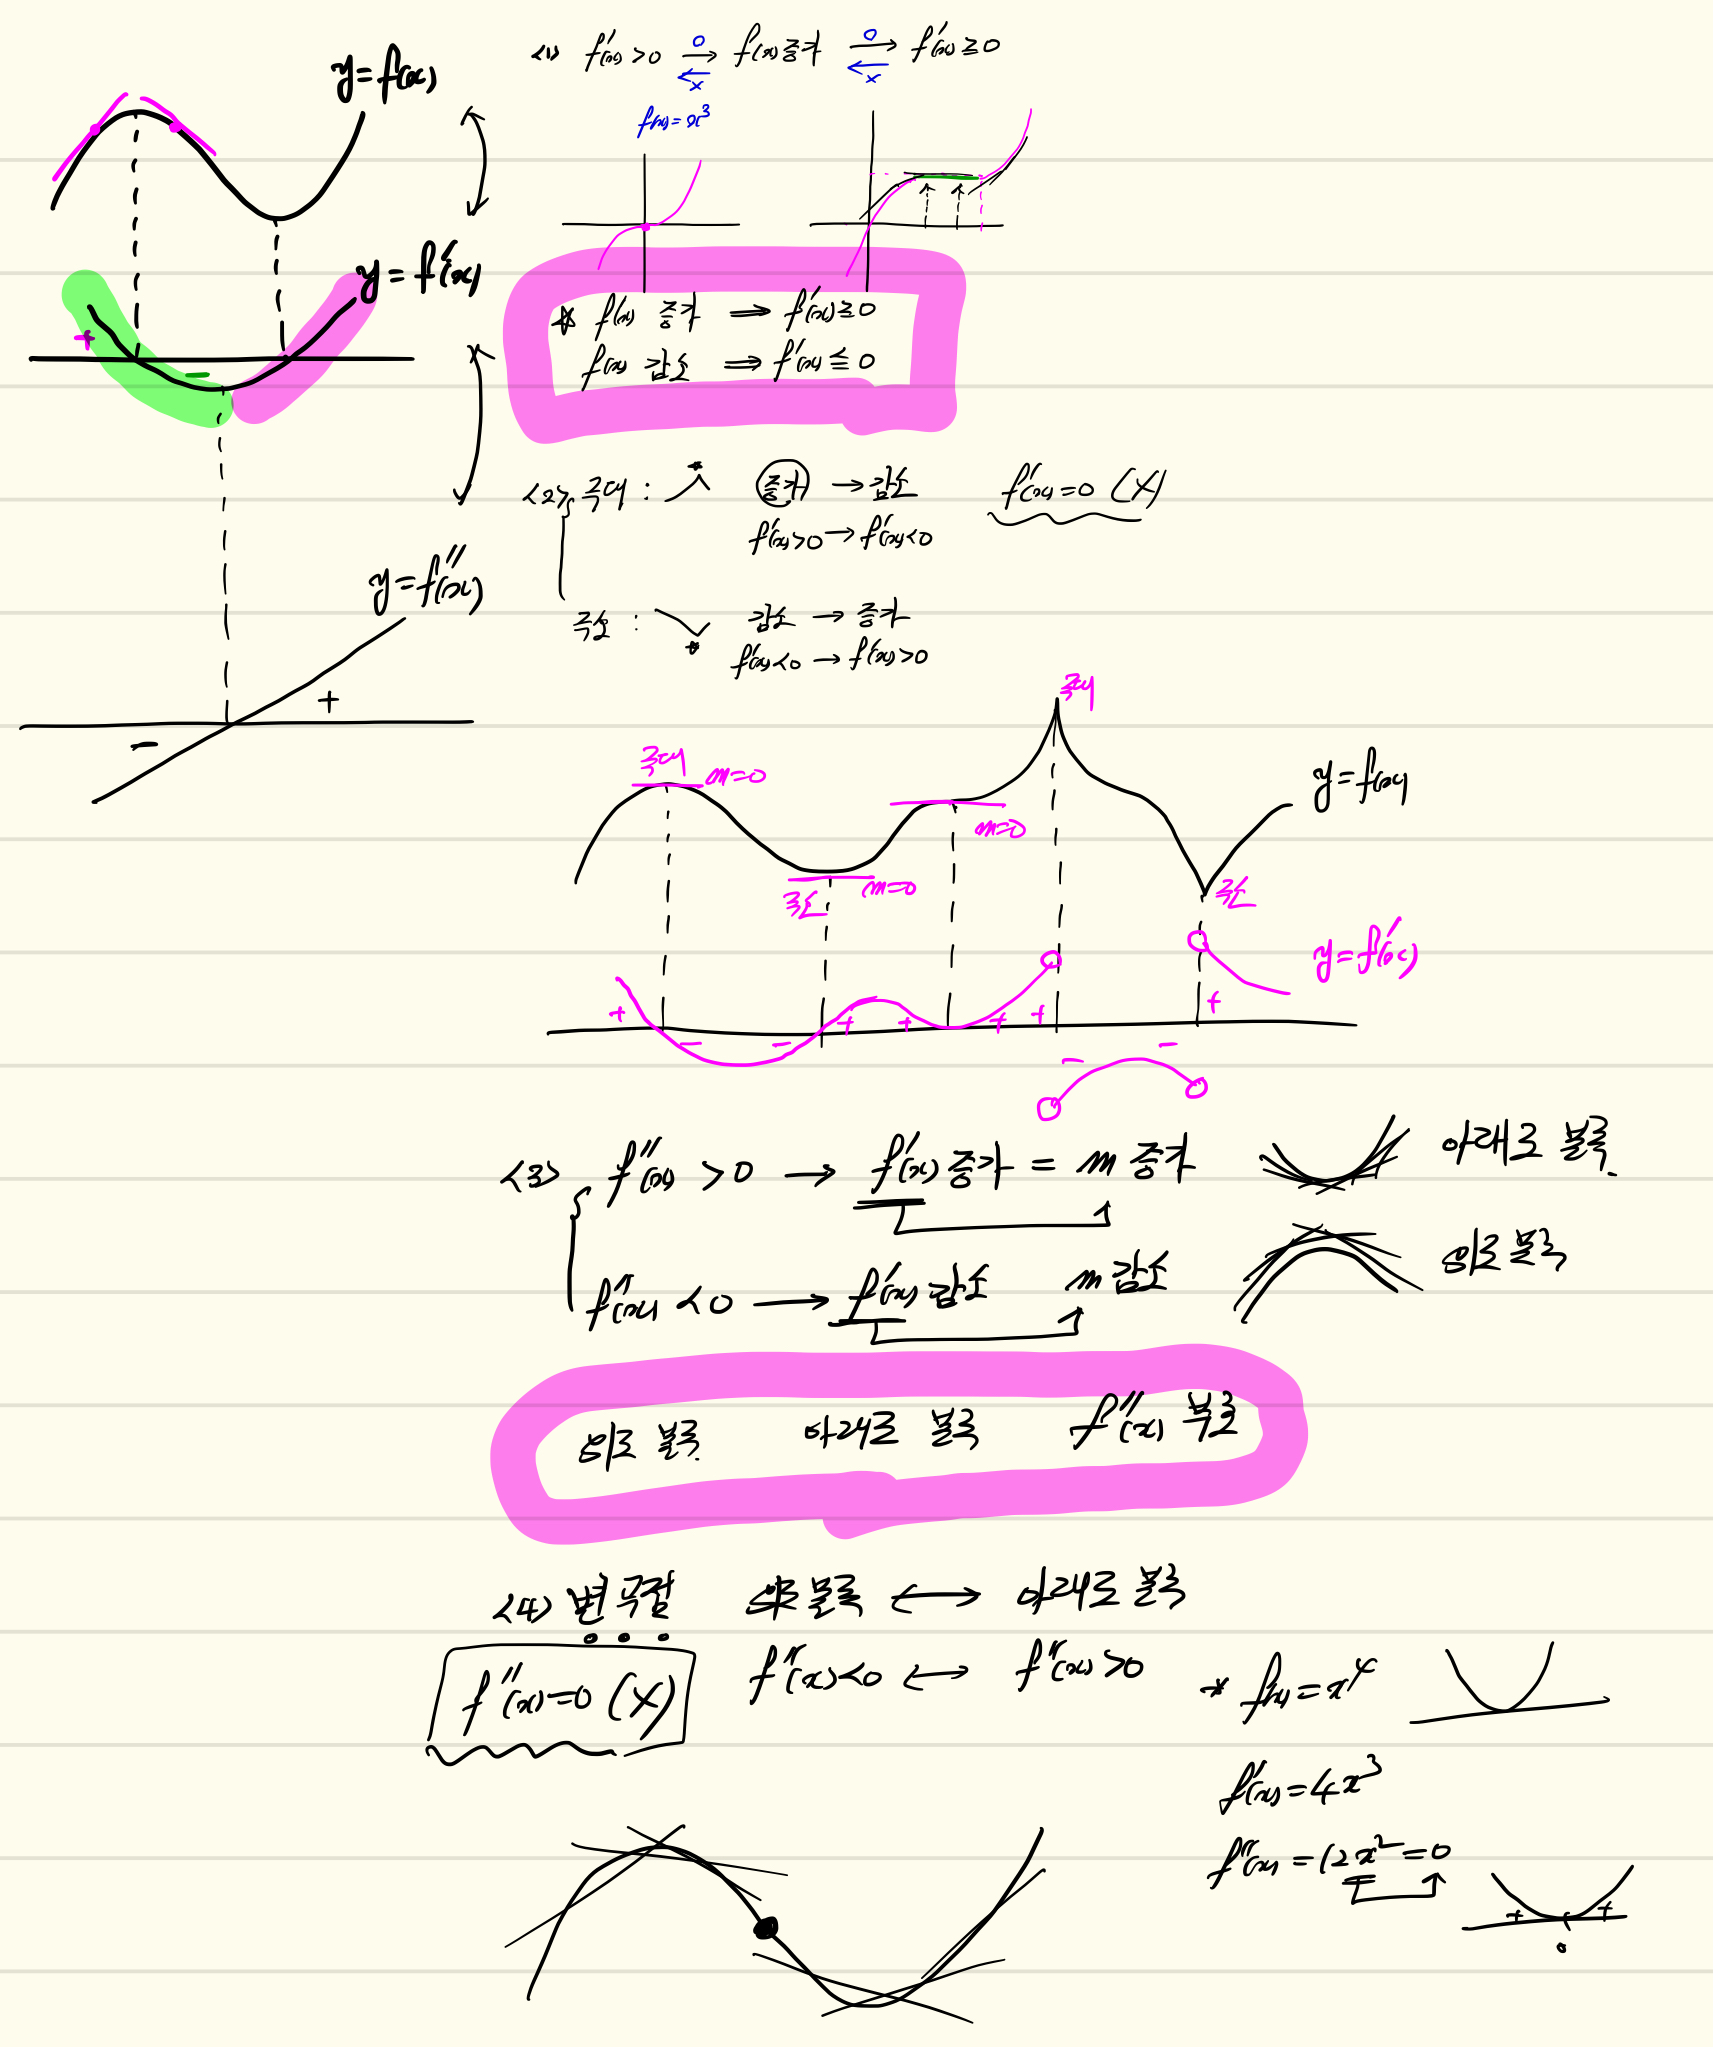 y=f(x)
y=f'(x)
+
−
y=f''(x)
+
−
<1> f'(x)>0 → f(x)증가 → f'(x)≧0
o o
← ←
x x
f(x)=x³
☆ f(x) 증가 ⟹ f'(x)≧0
f(x) 감소 ⟹ f'(x)≦0
<2> 극대 : 증가 → 감소 f'(x)=0 (X)
f'(x)>0 → f'(x)<0
극소 : 감소 → 증가
f'(x)<0 → f'(x)>0
극대
극대 m=0
y=f(x)
m=0
극소 m=0
극소
y=f'(x)
+ − − + + + + − − +
<3> f''(x) >0 → f'(x) 증가 = m 증가 아래로 볼록.
f''(x) <0 → f'(x) 감소 m 감소 위로 볼록
위로 볼록. 아래로 볼록 f''(x) 부호
<4> 변곡점 위로 볼록 ↔ 아래로 볼록
f''(x)=0 (X) f''(x)<0 ↔ f''(x)>0
* f(x)=x⁴
f'(x)=4x³
f''(x)=12x²=0
+ +